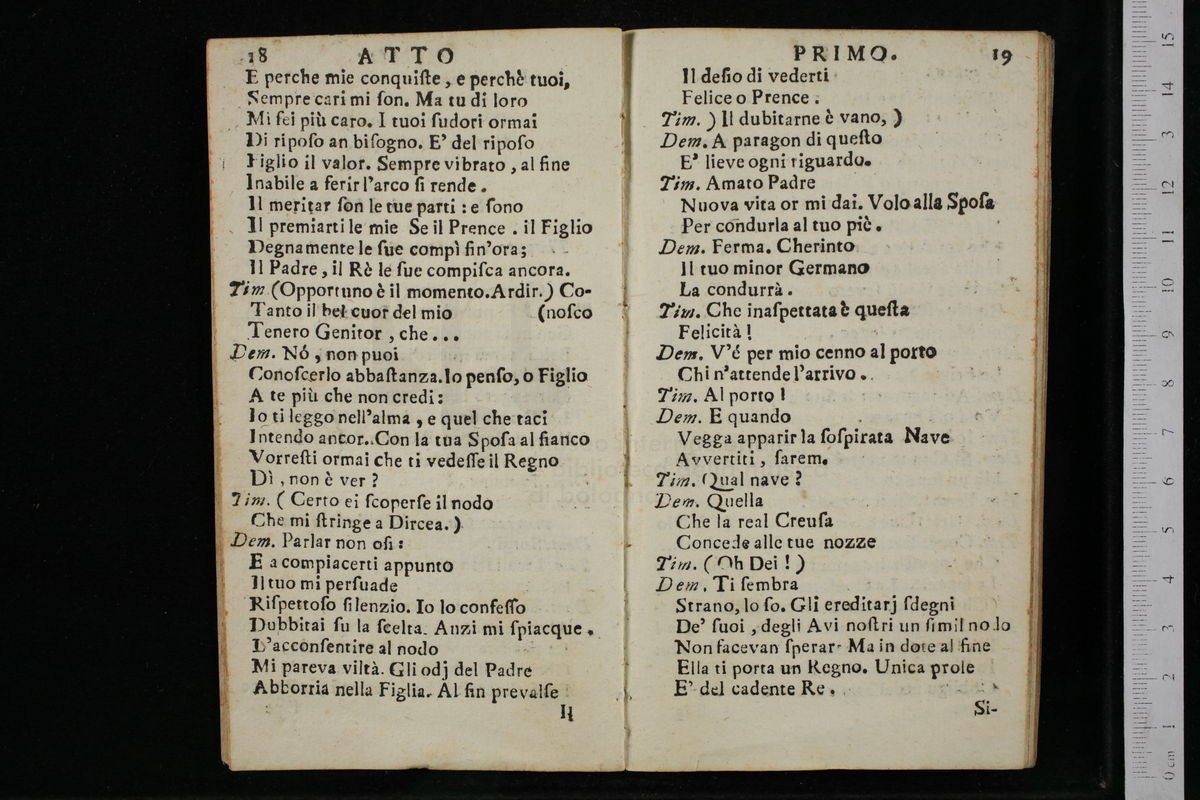 18 ATTO
E perche mie conquiſte, e perchè tuoi,
Sempre cari mi ſon. Ma tu di loro
Mi ſei più caro. I tuoi ſudori ormai
Di ripoſo an biſogno. E' del ripoſo
Figlio il valor. Sempre vibrato, al fine
Inabile a ferir l'arco ſi rende.
Il meritar ſon le tue parti: e ſono
Il premiarti le mie Se il Prence. il Figlio
Degnamente le ſue compì fin'ora;
Il Padre, il Rè le ſue compiſca ancora.
Tim (Opportuno è il momento. Ardir.) Co-
Tanto il bel cuor del mio (noſco
Tenero Genitor, che...
Dem. Nó, non puoi
Conoſcerlo abbaſtanza. Io penſo, o Figlio
A te più che non credi:
Io ti leggo nell'alma, e quel che taci
Intendo ancor. Con la tua Spoſa al fianco
Vorreſti ormai che ti vedeſſe il Regno
Dì, non è ver?
Tim. (Certo ei ſcoperſe il nodo
Che mi ſtringe a Dircea.)
Dem. Parlar non oſi:
E a compiacerti appunto
Il tuo mi perſuade
Riſpettoſo ſilenzio. Io lo confeſſo
Dubbitai ſu la ſcelta. Anzi mi ſpiacque.
L'acconſentire al nodo
Mi pareva viltà. Gli odj del Padre
Abborria nella Figlia. Al fin prevalſe
Il
PRIMO. 19
Il deſio di vederti
Felice o Prence.
Tim. ) Il dubitarne è vano, )
Dem. A paragon di queſto
E' lieve ogni riguardo.
Tim. Amato Padre
Nuova vita or mi dai. Volo alla Spoſa
Per condurla al tuo piè.
Dem. Ferma. Cherinto
Il tuo minor Germano
La condurrà.
Tim. Che inaſpettata è queſta
Felicità!
Dem. V'é per mio cenno al porto
Chi n'attende l'arrivo.
Tim. Al porto!
Dem. E quando
Vegga apparir la ſoſpirata Nave
Avvertiti, ſarem.
Tim. Qual nave?
Dem. Quella
Che la real Creuſa
Concede alle tue nozze
Tim. (Oh Dei!)
Dem. Ti ſembra
Strano, lo ſo. Gli ereditarj ſdegni
De' ſuoi, degli Avi noſtri un ſimil nodo
Non facevan ſperar. Ma in dote al fine
Ella ti porta un Regno. Unica prole
E' del cadente Re.
Si-